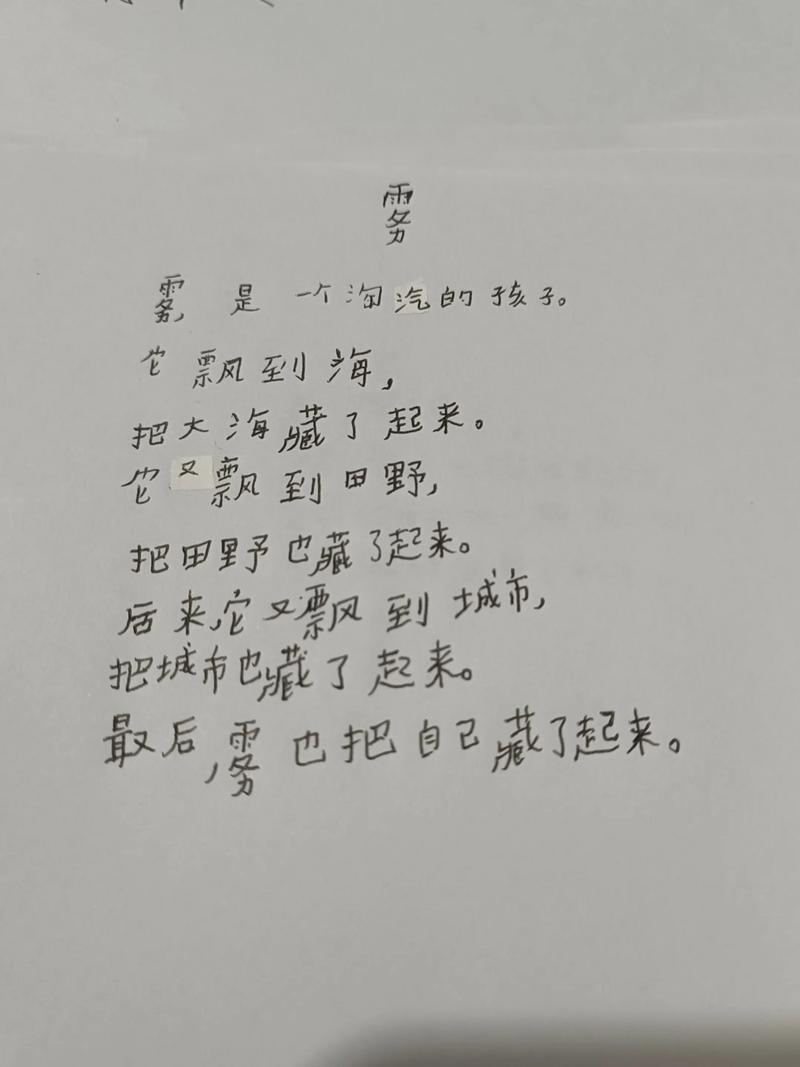 雾
雾,是一个淘汽的孩子。
它飘到海,
把大海藏了起来。
它又飘到田野,
把田野也藏了起来。
后来,它又飘到城市,
把城市也藏了起来。
最后,雾也把自己藏了起来。